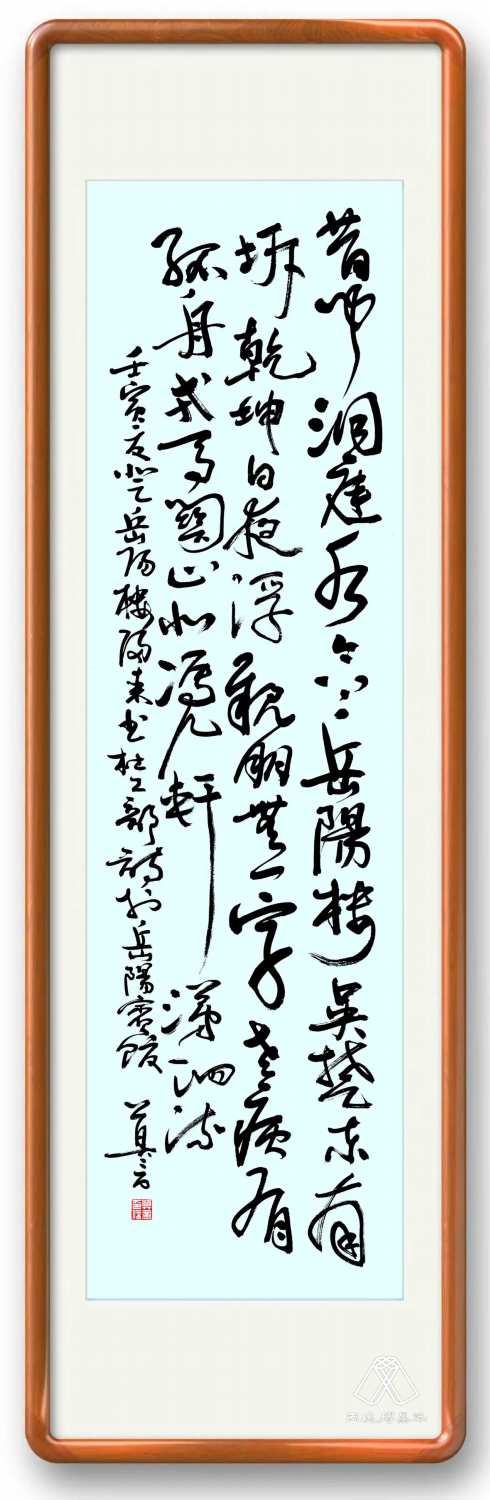 昔聞洞庭水今上岳陽樓吳楚東南
坼乾坤日夜浮親朋無一字老病有
孤舟戎馬關山北憑軒涕泗流
壬寅夏登岳陽樓歸來書杜工部詩於岳陽賓館 莫言
两块砖墨讯